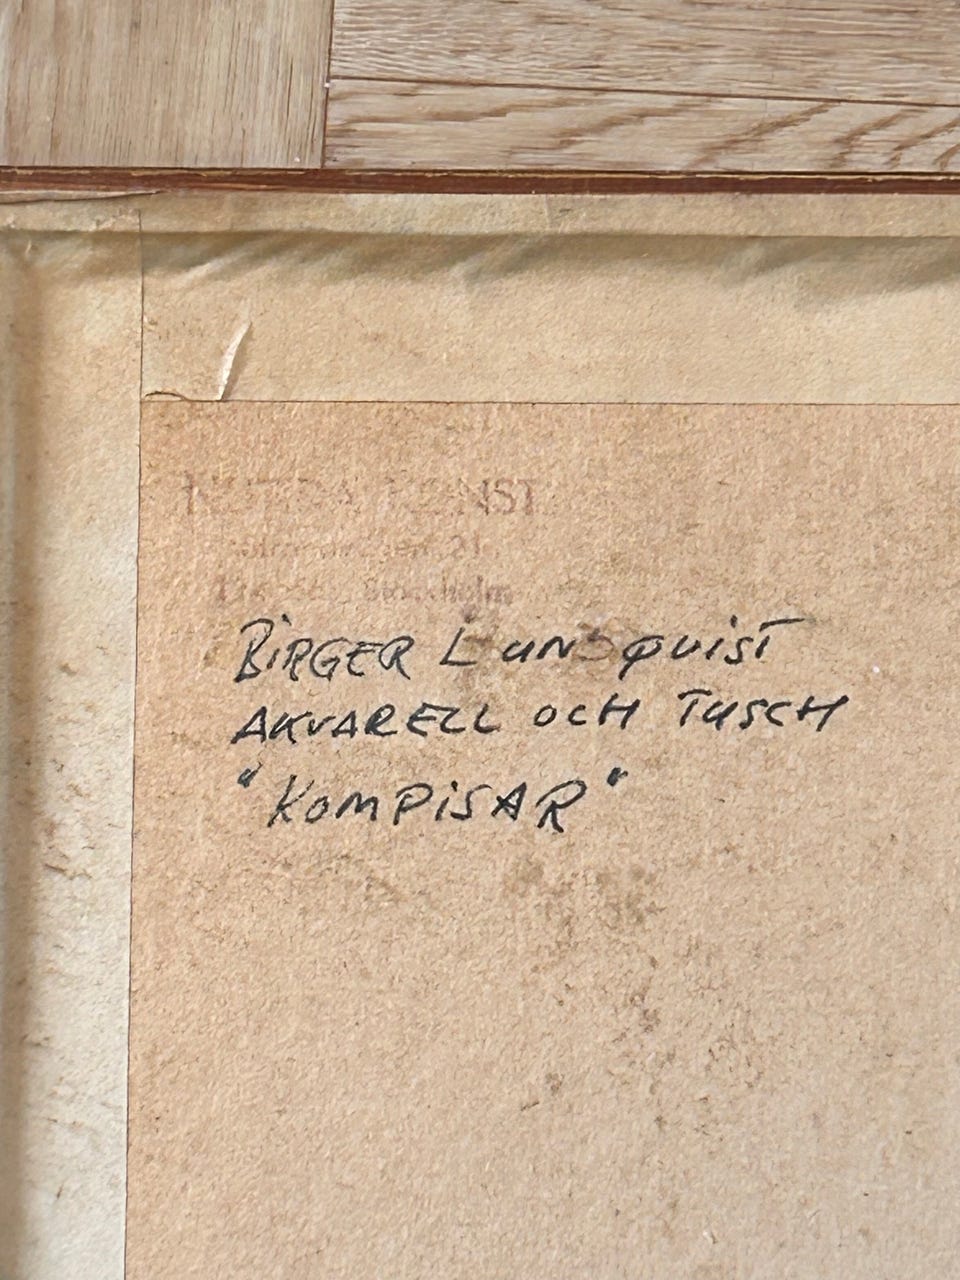 KONST
Stockholm
BIRGER LUNDQUIST
AKVARELL OCH TUSCH
"KOMPISAR"